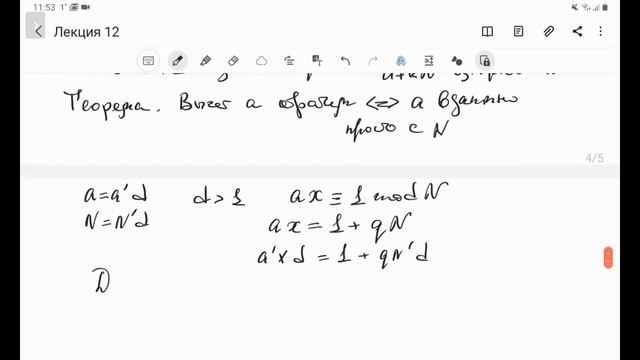 11:53 1°
Лекция 12
a+kN
Теорема. Вычет a обратим <=> a взаимно
просто с N
4/5
a = a'd d > 1 ax ≡ 1 mod N
N = N'd ax = 1 + qN
a'xd = 1 + qN'd
D